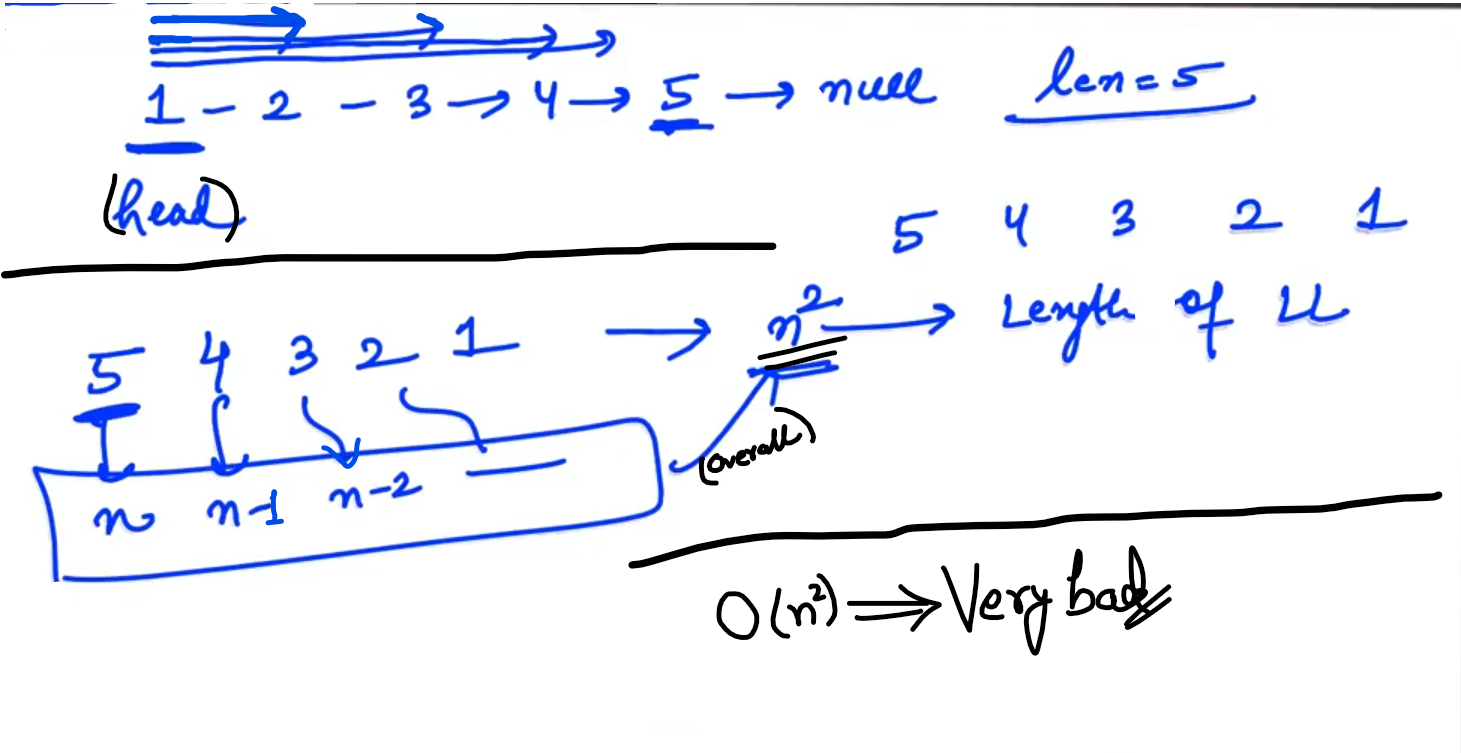 1 - 2 - 3 → 4 → 5 → null len = 5
(head)
5 4 3 2 1
5 4 3 2 1 → n² → Length of LL
(overall)
n n-1 n-2 —
O(n²) ⇒ Very bad